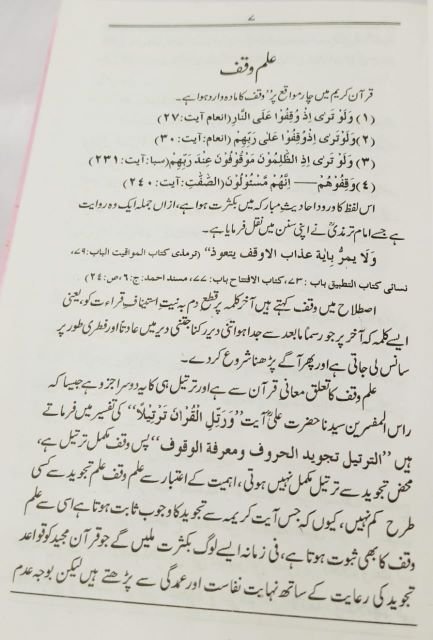 ۷
علم وقف
قرآن کریم میں چار مواقع پر ”وقف“ کا مادہ وارد ہوا ہے۔
(۱) وَلَوْ تَرٰی اِذْ وُقِفُوْا عَلَی النَّارِ (انعام آیت:۲۷)
(۲) وَلَوْ تَرٰی اِذْوُقِفُوْا عَلٰی رَبِّهِمْ (انعام: آیت:۳۰)
(۳) وَلَوْ تَرٰی اِذِ الظّٰلِمُوْنَ مَوْقُوْفُوْنَ عِنْدَ رَبِّهِمْ (سبا: آیت: ۲۳۱)
(۴) وَقِفُوْهُمْ — اِنَّهُمْ مَسْئُوْلُوْنَ (الصّٰفّٰتِ: آیت: ۲۴۰)
اس لفظ کا ورود احادیث مبارکہ میں بکثرت ہوا ہے، ازاں جملہ ایک وہ روایت
ہے جسے امام ترمذیؒ نے اپنی سنن میں نقل فرمایا ہے۔
وَلَا یمرُّ بِاٰیة عذاب الاوقف یتعوذ“ (ترمذی کتاب المواقیت الباب: ۷۹،
نسائی کتاب التطبیق باب: ۷۳، کتاب الافتتاح باب: ۷۷، مسند احمد: ج: ۶، ص: ۲۴)
اصطلاح میں وقف کہتے ہیں آخر کلمہ پر قطع دم بہ نیت استیناف قراءت کو، یعنی
ایسے کلمہ کہ آخر پر جو رسماً مابعد سے جدا ہو اتنی دیر رکنا جتنی دیر میں عادتاً اور فطری طور پر
سانس لی جاتی ہے اور پھر آگے پڑھنا شروع کردے۔
علم وقف کا تعلق معانی قرآن سے ہے اور ترتیل ہی کا یہ دوسرا جزو ہے جیسا کہ
راس المفسرین سیدنا حضرت علیؓ آیت ”وَرَتِّلِ الْقُرْاٰنَ تَرْتِیْلًا“ کی تفسیر میں فرماتے
ہیں ”الترتیل تجوید الحروف ومعرفة الوقوف“ پس وقف مکمل ترتیل ہے،
محض تجوید سے ترتیل مکمل نہیں ہوتی، اہمیت کے اعتبار سے علم وقف علم تجوید سے کسی
طرح کم نہیں، کیوں کہ جس آیت کریمہ سے تجوید کا وجوب ثابت ہوتا ہے اسی سے علم
وقف کا بھی ثبوت ہوتا ہے، فی زمانہ ایسے لوگ بکثرت ملیں گے جو قرآن مجید کو قواعد
تجوید کی رعایت کے ساتھ نہایت نفاست اور عمدگی سے پڑھتے ہیں لیکن بوجہ عدم